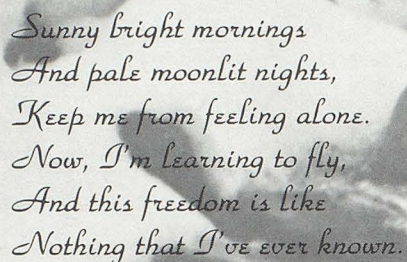 Sunny bright mornings
And pale moonlit nights,
Keep me from feeling alone.
Now, I'm learning to fly,
And this freedom is like
Nothing that I've ever known.